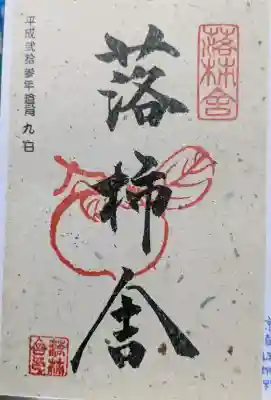 落柿舎
落柿舎
平成弐拾参年拾月九日
落柿舎